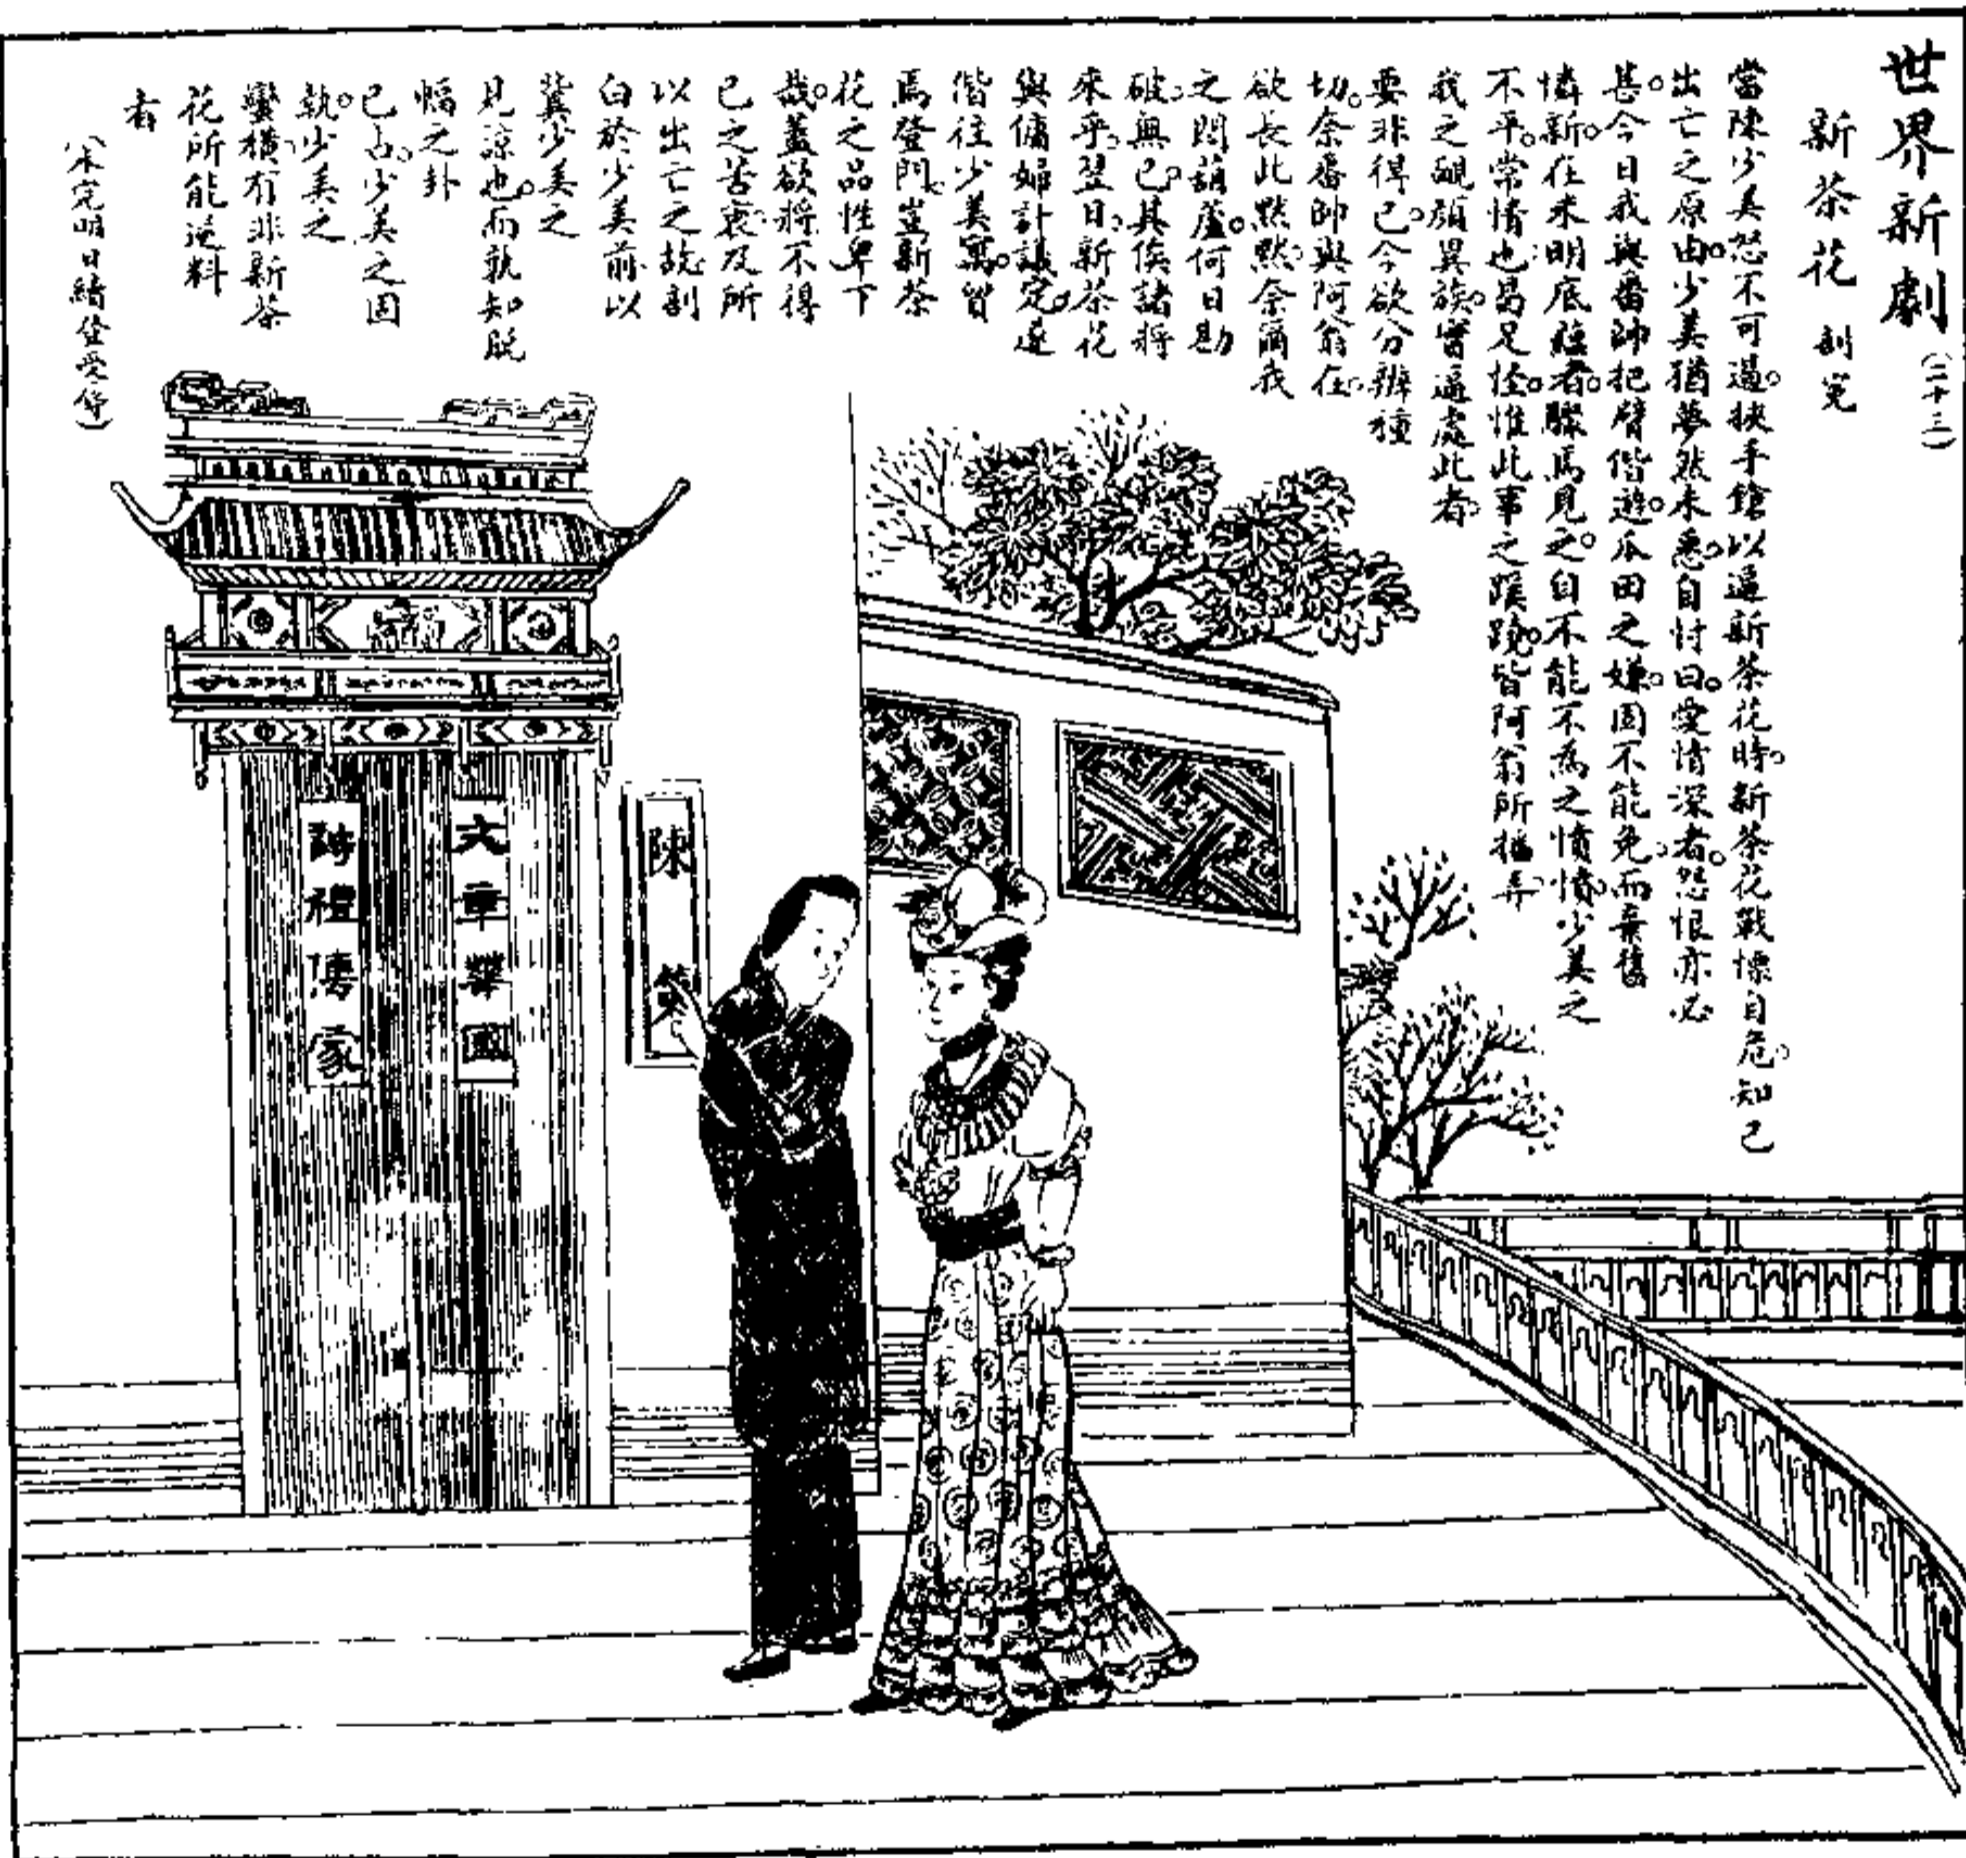 世界新劇(二十三)
新茶花 剖冤
當陳少美怒不可遏。挾手鎗以逼新茶花時。新茶花戰慄自危。知己
出亡之原由。少美猶夢然未悉。自忖曰。愛情深者。怨恨亦必
甚。今日我與番帥把臂偕遊。瓜田之嫌。固不能免。而棄舊
憐新。在未明底蘊者。驟馬見之。自不能不為之憤憤。少美之
不平。常情也。曷足怪。惟此事之蹊蹺。皆阿翁所播弄
我之靦顏異族。嘗逼處此者。
要非得已。今欲分辨種
切。奈番帥與阿翁在。
欲長此默默。奈爾我
之悶葫蘆。何日勘
破。無已。其俟諸將
來乎。翌日。新茶花
與傭婦計議定。遂
偕往少美寓。貿
焉登門。豈新茶
花之品性卑下
哉。蓋欲將不得
已之苦衷。及所
以出亡之故。剖
白於少美前。以
冀少美之
見諒也。而孰知脫
輻之卦
已占。少美之固
執。少美之
蠻橫。有非新茶
花所能逆料
者
(未完明日續登受侍)
陳
文章華國
詩禮傳家